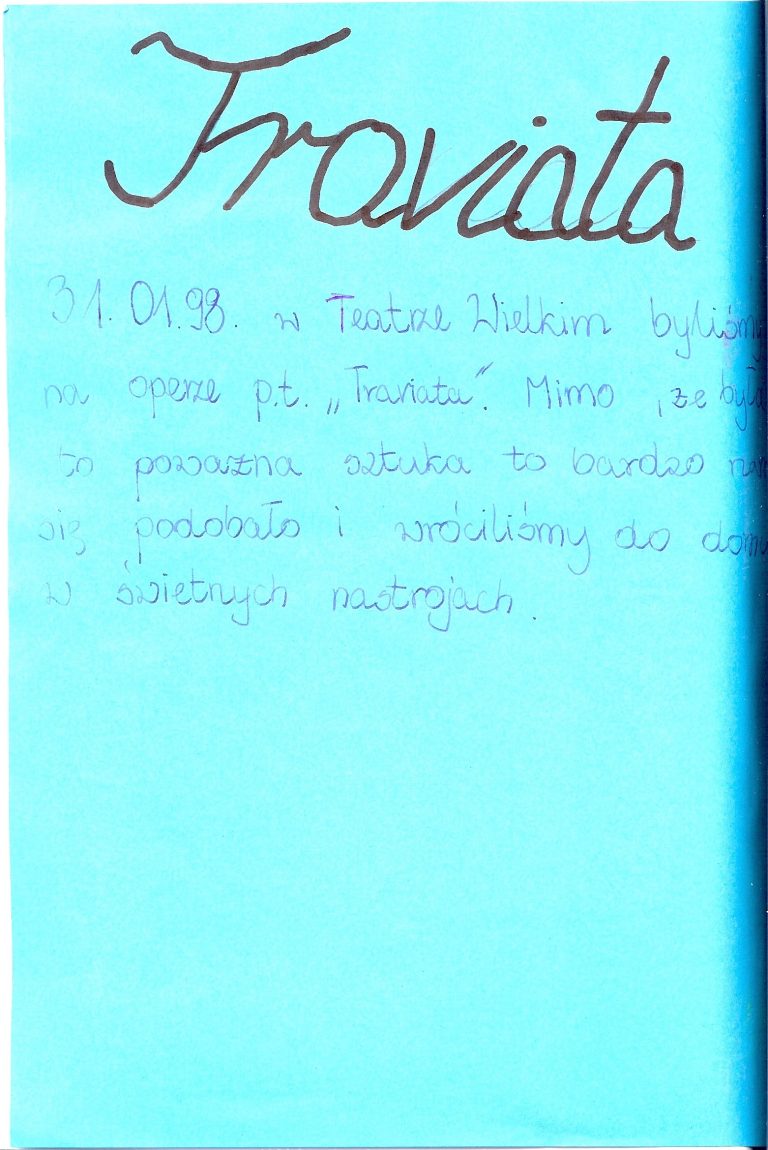 Traviata
31.01.98. w Teatrze Wielkim byliśmy
na operze p.t. „Traviata”. Mimo, że była
to poważna sztuka to bardzo nam
się podobało i wróciliśmy do domu
w świetnych nastrojach.